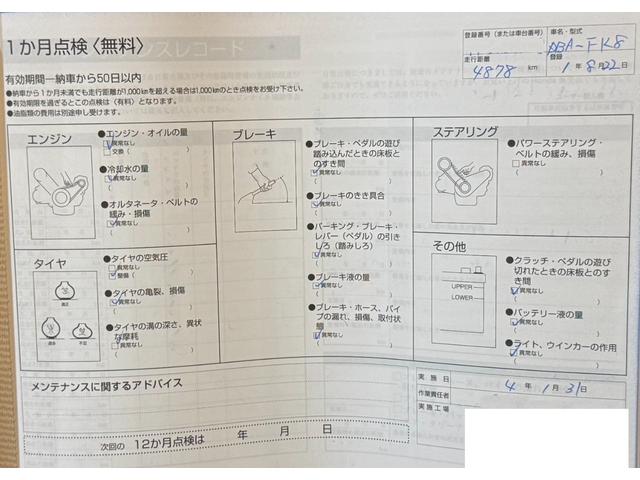 1か月点検〈無料〉
登録番号(または車台番号)
車名・型式
ABA-FK8
走行距離
4878 km
登録
1年8月22日
有効期間―納車から50日以内
●納車から1か月未満でも走行距離が1,000kmを超える場合は1,000kmのとき点検をお受け下さい。
●有効期限を過ぎるとこの点検は(有料)となります。
●油脂類の費用は別途申し受けます。
エンジン
●エンジン・オイルの量
異常なし
交換( )
●冷却水の量
異常なし
( )
●オルタネータ・ベルトの
緩み・損傷
異常なし
( )
タイヤ
適正
過多
不足
●タイヤの空気圧
異常なし
整備( )
●タイヤの亀裂、損傷
異常なし
( )
●タイヤの溝の深さ、異状
な摩耗
異常なし
( )
ブレーキ
●ブレーキ・ペダルの遊び
踏み込んだときの床板と
のすき間
異常なし
( )
●ブレーキのきき具合
異常なし
( )
●パーキング・ブレーキ・
レバー(ペダル)の引き
しろ(踏みしろ)
異常なし
( )
●ブレーキ液の量
異常なし
( )
●ブレーキ・ホース、パイ
プの漏れ、損傷、取付状
態
異常なし
( )
ステアリング
●パワーステアリング・
ベルトの緩み、損傷
異常なし
( )
その他
UPPER
LOWER
●クラッチ・ペダルの遊び
切れたときの床板とのす
き間
異常なし
( )
●バッテリー液の量
異常なし
( )
●ライト、ウインカーの作用
異常なし
( )
メンテナンスに関するアドバイス
次回の 12か月点検は 年 月 日
実施日
4年1月31日
作業責任者
実施工場